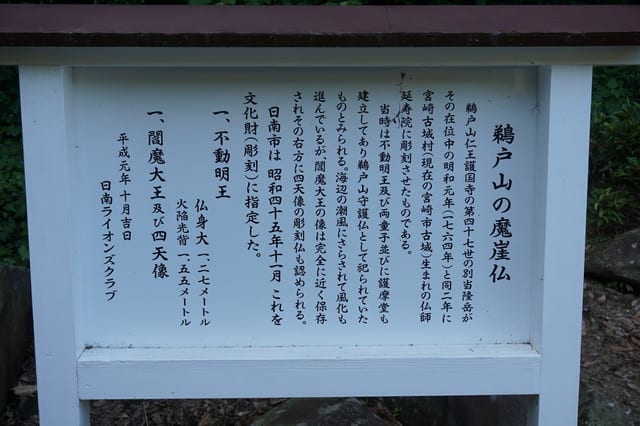 鵜戸山の魔崖仏
鵜戸山仁王護国寺の第四十七世の別当隆岳が
その在位中の明和元年(一七六四年)と同二年に
宮崎古城村(現在の宮崎市古城)生まれの仏師
延寿院に彫刻させたものである。
当時は不動明王及び両童子並びに護摩堂も
建立してあり鵜戸山守護仏として祀られていた
ものとみられる。海辺の潮風にさらされて風化も
進んでいるが、閻魔大王の像は完全に近く保存
されその右方に四天像の彫刻仏も認められる。
日南市は 昭和四十五年十一月 これを
文化財(彫刻)に指定した。
一、不動明王
仏身大 一、二七メートル
火焔光背 一、五五メートル
一、閻魔大王及び四天像
平成元年十月吉日
日南ライオンズクラブ